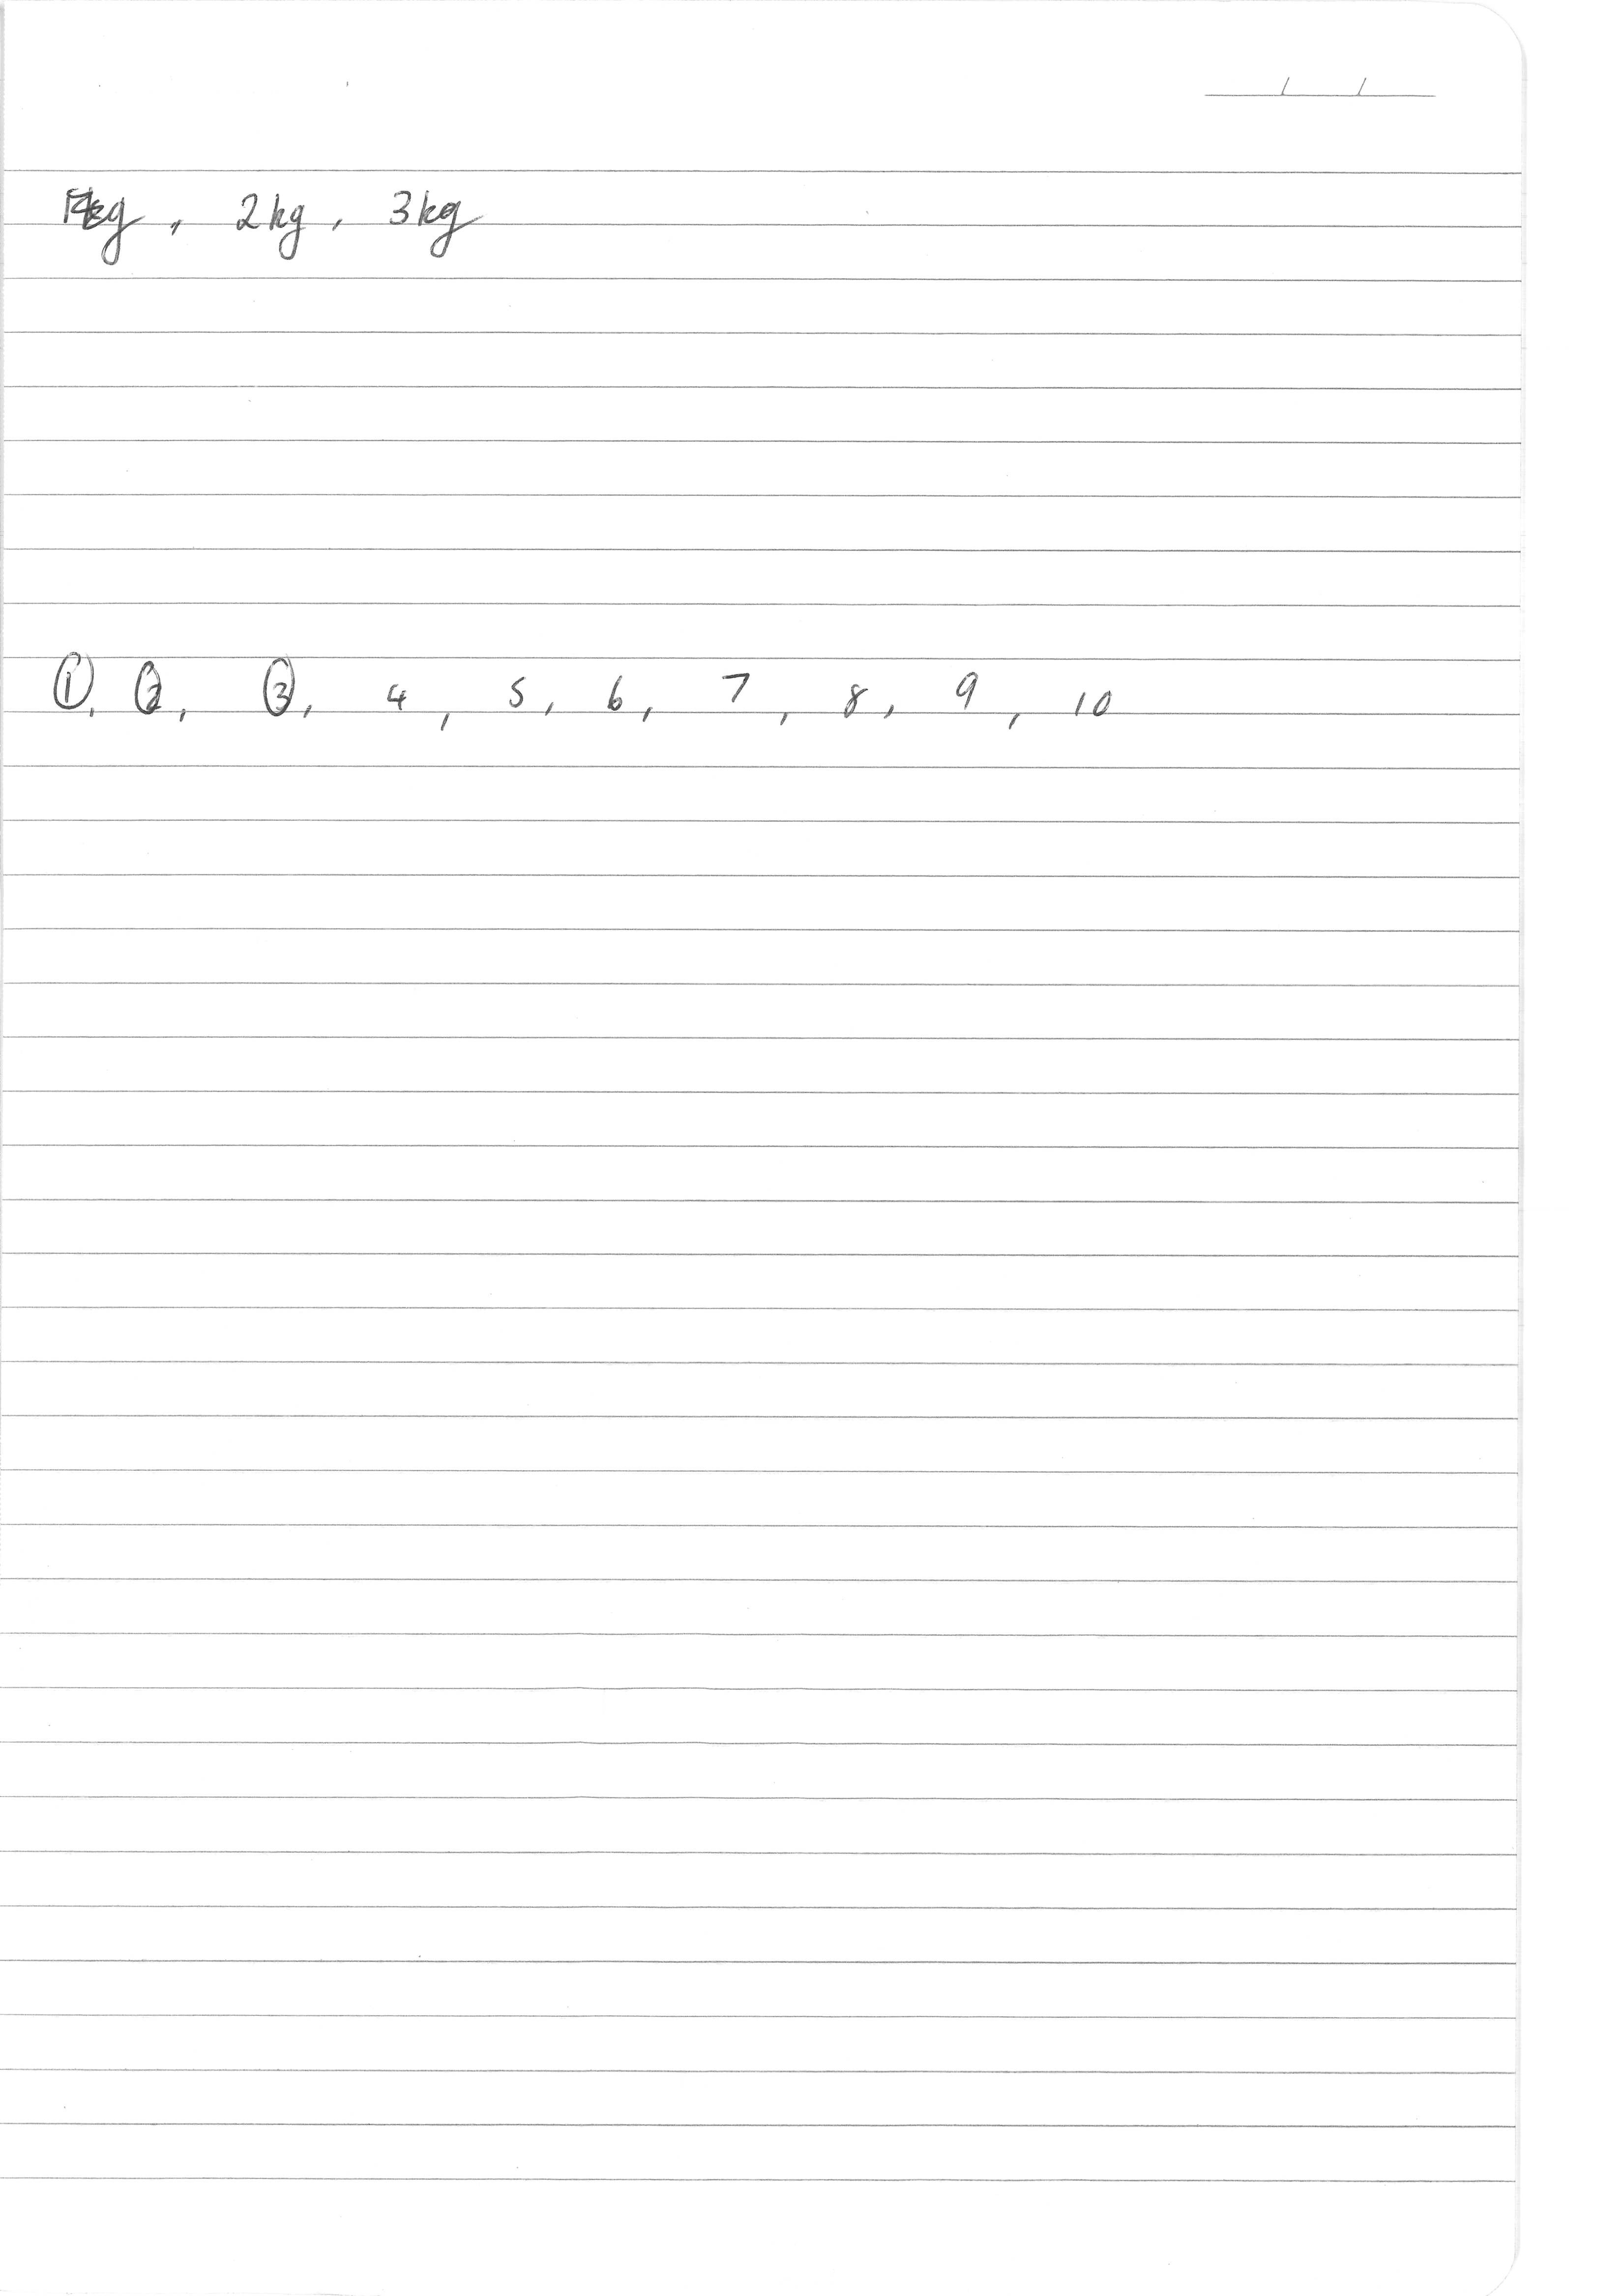 kg, 2kg, 3kg
①, ②, ③, 4, 5, 6, 7, 8, 9, 10